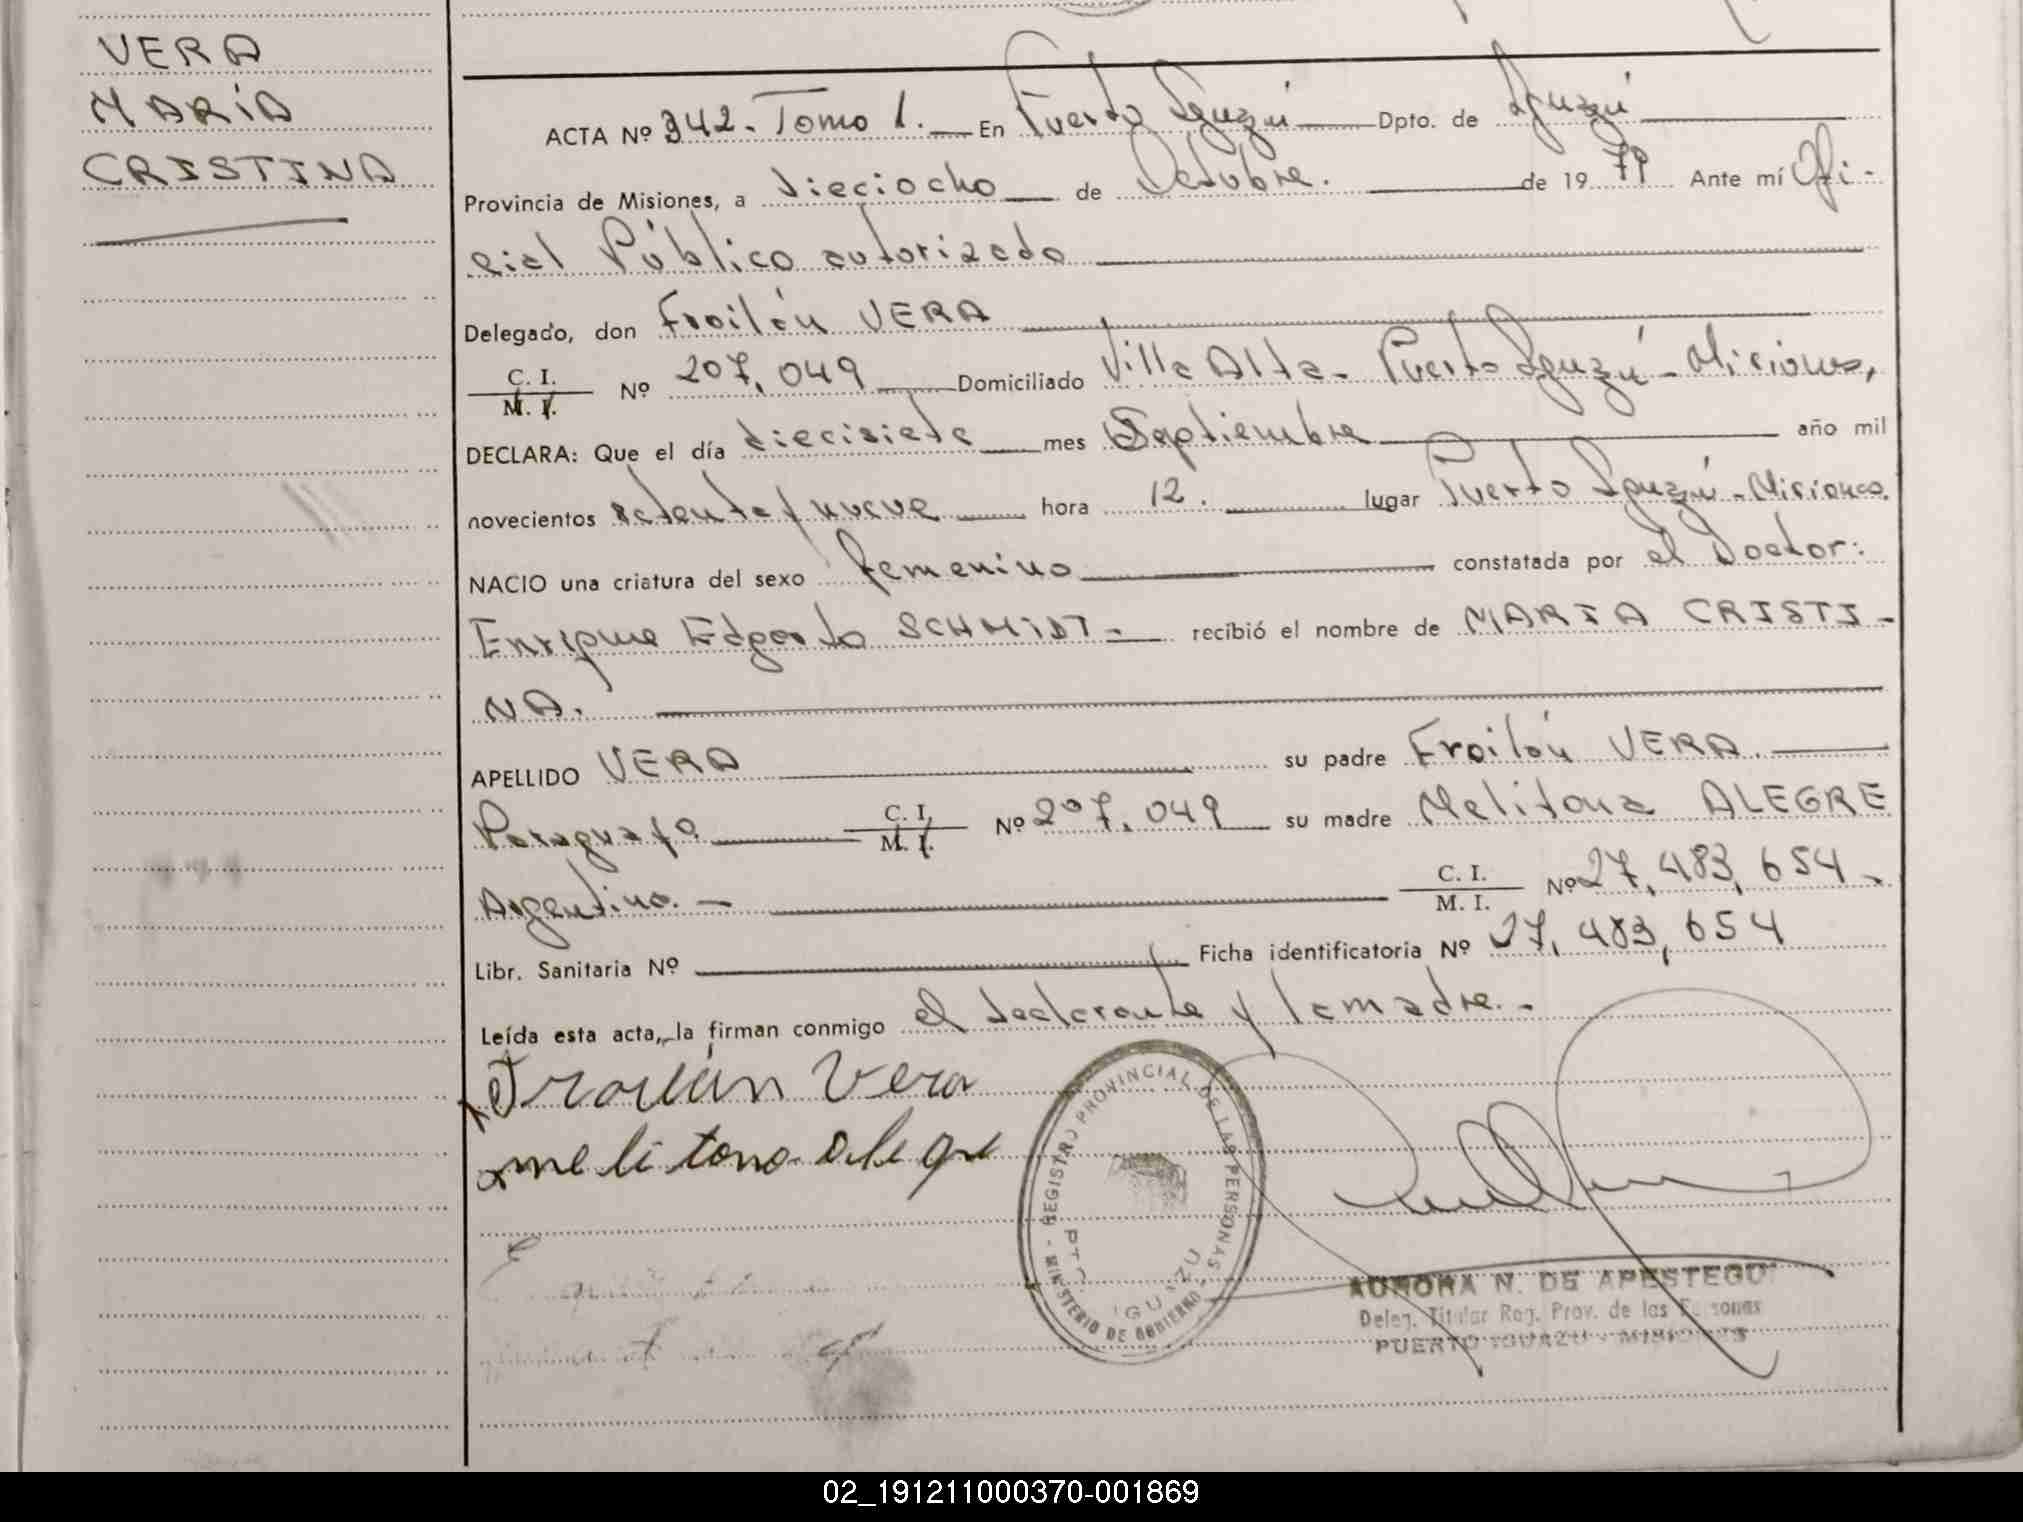 VERA
MARÍA
CRISTINA
ACTA Nº 342. Tomo 1. En Puerto Iguazú Dpto. de Iguazú
Provincia de Misiones, a dieciocho de Octubre. de 19 79 Ante mí Ofi-
cial Público autorizado
Delegado, don Froilán VERA
C. I.
M. I. Nº 207.049 Domiciliado Villa Alta - Puerto Iguazú - Misiones,
DECLARA: Que el día diecisiete mes Septiembre año mil
novecientos setenta y nueve hora 12. lugar Puerto Iguazú - Misiones.
NACIO una criatura del sexo femenino constatada por el Doctor:
Enrique Edgardo SCHMIDT - recibió el nombre de MARIA CRISTI-
NA.
APELLIDO VERA su padre Froilán VERA.
Paraguayo C. I.
M. I. Nº 207.049 su madre Melitona ALEGRE
Argentina. - C. I.
M. I. Nº 27.483.654 -
Libr. Sanitaria Nº Ficha identificatoria Nº 27.483.654
Leída esta acta, la firman conmigo el declarante y la madre. -
Froilán Vera
melitona alegre
MINISTERIO DE GOBIERNO - REGISTRO PROVINCIAL DE LAS PERSONAS
PTO. IGUAZU
AURORA N. DE APESTEGUI
Deleg. Titular Reg. Prov. de las Personas
PUERTO IGUAZU - MISIONES
02_191211000370-001869